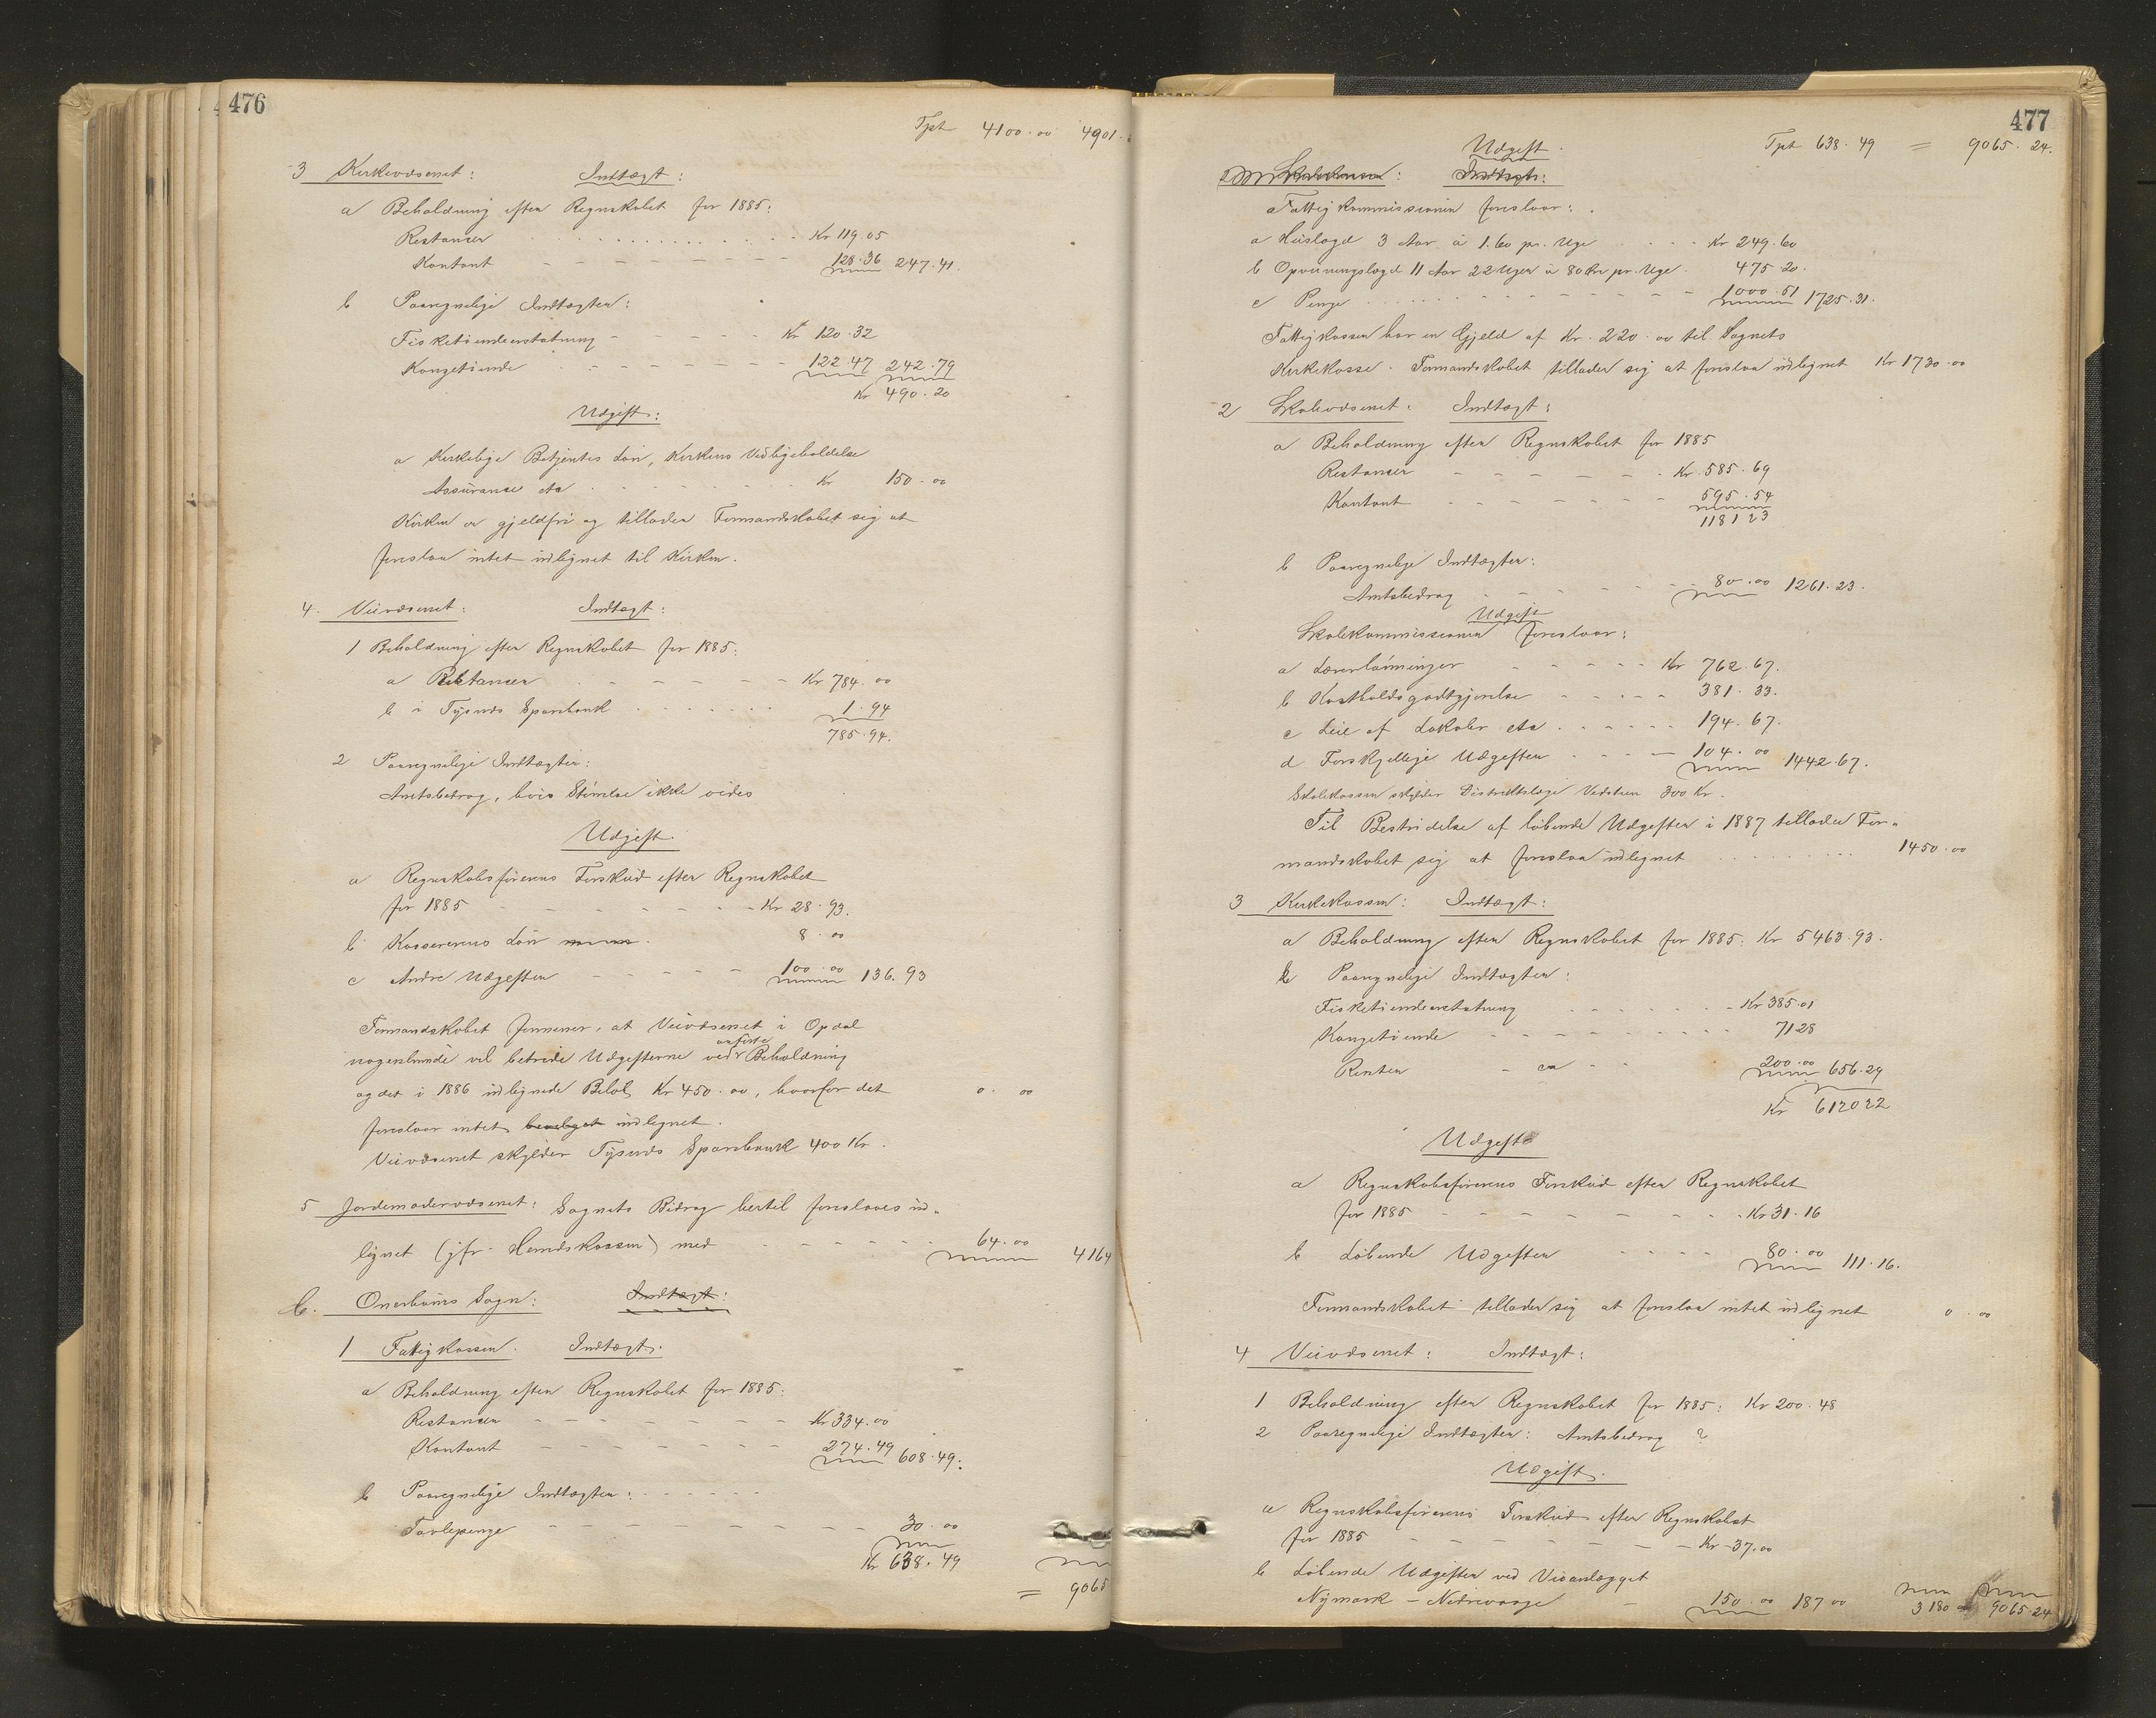 476
Tpt 4100.00 4901.
3 Kirkevæsenet: Indtægt:
a Beholdning efter Regnskabet for 1885:
Restancer Kr 119.05
Kontant 128.36 247.41.
b Paaregnelige Indtægter:
Fisketiendeerstatning Kr 120.32
Kongetiende 122.47 242.79
Kr 490.20
Udgift:
a Kirkelige Betjentes Løn, Kirkens Vedligeholdelse
Assurance etc Kr 150.00
Kirken er gjeldfri og tillader Formandskabet sig at
foreslaa intet udlignet til Kirken.
4. Veivæsenet: Indtægt:
1 Beholdning efter Regnskabet for 1885:
a Restancer Kr 784.00
b i Tysnes Sparebank 1.94
785.94.
2 Paaregnelige Indtægter:
Amtsbetrag, hvis Størrelse ikke vides
Udgift.
a Regnskabsførerens Forskud efter Regnskabet
for 1885 Kr 28.93.
b Kassererens Løn 8.00
c Andre Udgifter 100.00 136.93
Formandskabet formener, at Veivæsenet i Opdal
nogenlunde vil bestride Udgifterne ved anførte Beholdning
og det i 1886 udlignede Beløb Kr 450.00, hvorfor det 0.00
foreslaar intet udlignet.
Veivæsenet skylder Tysnes Sparebank 400 Kr.
5 Jordemodervæsenet: Sognets Bidrag hertil foreslaaes ud-
lignet (jfr. Herredskassen) med 64.00 4164
C. Onarheims Sogn: Indtægt:
1 Fattigkassen. Indtægt.
a Beholdning efter Regnskabet for 1885:
Restancer Kr 334.00
Kontant 274.49 608.49.
b Paaregnelige Indtægter:
Tavlepenge 30.00
Kr 638.49
= 9065
477
Tpt 638.49 = 9065.24.
Udgift
Indtægt:
Fattigkommissionen foreslaar:
a Huslægd 3 Aar à 1.60 pr. Uge Kr 249.60
b Opvoxningslægd 11 Aar 22 Uger à 80 Øre pr. Uge. 475.20.
c Penge 1000.51 1725.31.
Fattigkassen har en Gjeld af Kr. 220.00 til Sognets
Kirkekasse. Formandskabet tillader sig at foreslaa udlignet Kr 1730.00
2 Skolevæsenet: Indtægt:
a Beholdning efter Regnskabet for 1885
Restancer Kr. 585.69
Kontant 595.54
1181 23
b Paaregnelige Indtægter:
Amtsbidrag 80.00 1261.23.
Udgift
Skolekommissionen foreslaar:
a Lærerlønninger Kr 762.67.
b Kostholdsgodtgjørelse 381.33.
c Leie af Lokaler etc 194.67.
d Forskjellige Udgifter 104.00 1442.67.
Skolekassen skylder Distriktslæge 300 Kr.
Til Bestridelse af løbende Udgifter i 1887 tillader For-
mandskabet sig at foreslaa udlignet 1450.00
3 Kirkekassen: Indtægt:
a Beholdning efter Regnskabet for 1885: Kr 5463.93.
b Paaregnelige Indtægter:
Fisketiendeerstatning Kr 385.01
Kongetiende 71 28
Renter ca 200.00 656.29
Kr 6120 22
Udgift
a Regnskabsførerens Forskud efter Regnskabet
for 1885 Kr 31.16
b Løbende Udgifter 80.00 111.16.
Formandskabet tillader sig at foreslaa intet udlignet 0.00
4 Veivæsenet: Indtægt:
1 Beholdning efter Regnskabet for 1885: Kr 200.48
2 Paaregnelige Indtægter: Amtsbidrag ?
Udgift.
a Regnskabsførerens Forskud efter Regnskabet
for 1885 Kr 37.00
b Løbende Udgifter ved Veianlægget
Nymark - Nedrevaage 150.00 187 00 3180 00 9065.24